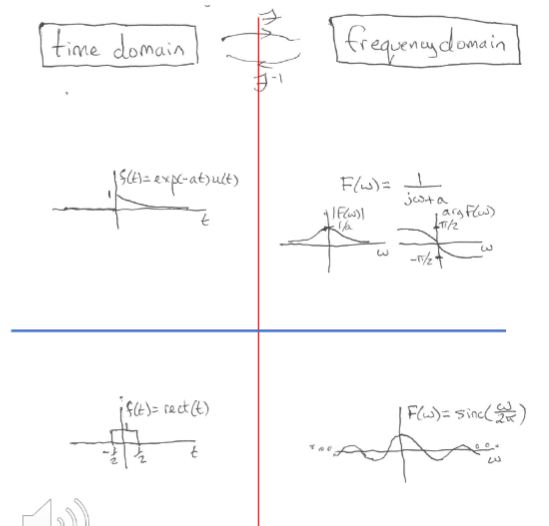 time domain
ℱ
ℱ⁻¹
frequency domain
f(t)=exp(-at)u(t)
1
t
F(ω)= 1/(jω+a)
|F(ω)|
1/a
ω
arg F(ω)
π/2
-π/2
ω
f(t)=rect(t)
1
-1/2
1/2
t
F(ω)=sinc(ω/2π)
ω